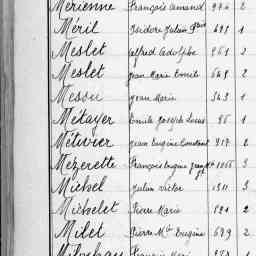 Mérienne François Amand 974 2
Méril Isidore Julien 693 1
Meslet Alfred Adolphe 963 2
Meslet Jean Marie Emile 649 2
Messu Jean Marie 343 1
Métayer Emile Joseph Louis 96 1
Métivier Jean Eugène Constant 917 2
Mézerette François Eugène 1266 3
Michel Julien Victor 1311 3
Michelet Pierre Marie 2
Milet Pierre Mie Eugène 699 2
François Marie